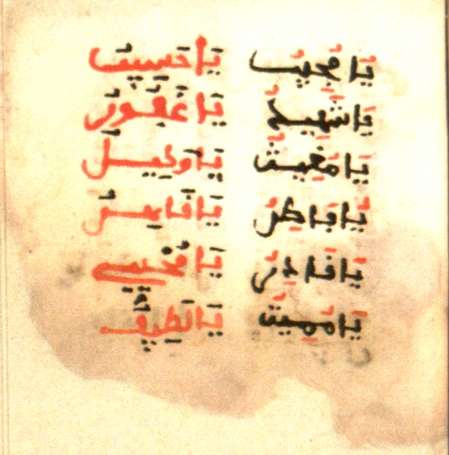 يَا مُجِيبُ يَا حَسِيبُ
يَا شَهِيدُ يَا غَفُورُ
يَا مُغِيثُ يَا وَكِيلُ
يَا فَاطِرُ يَا قَاهِرُ
يَا قَادِرُ يَا مُحْيِي
يَا مُمِيتُ يَا لَطِيفُ